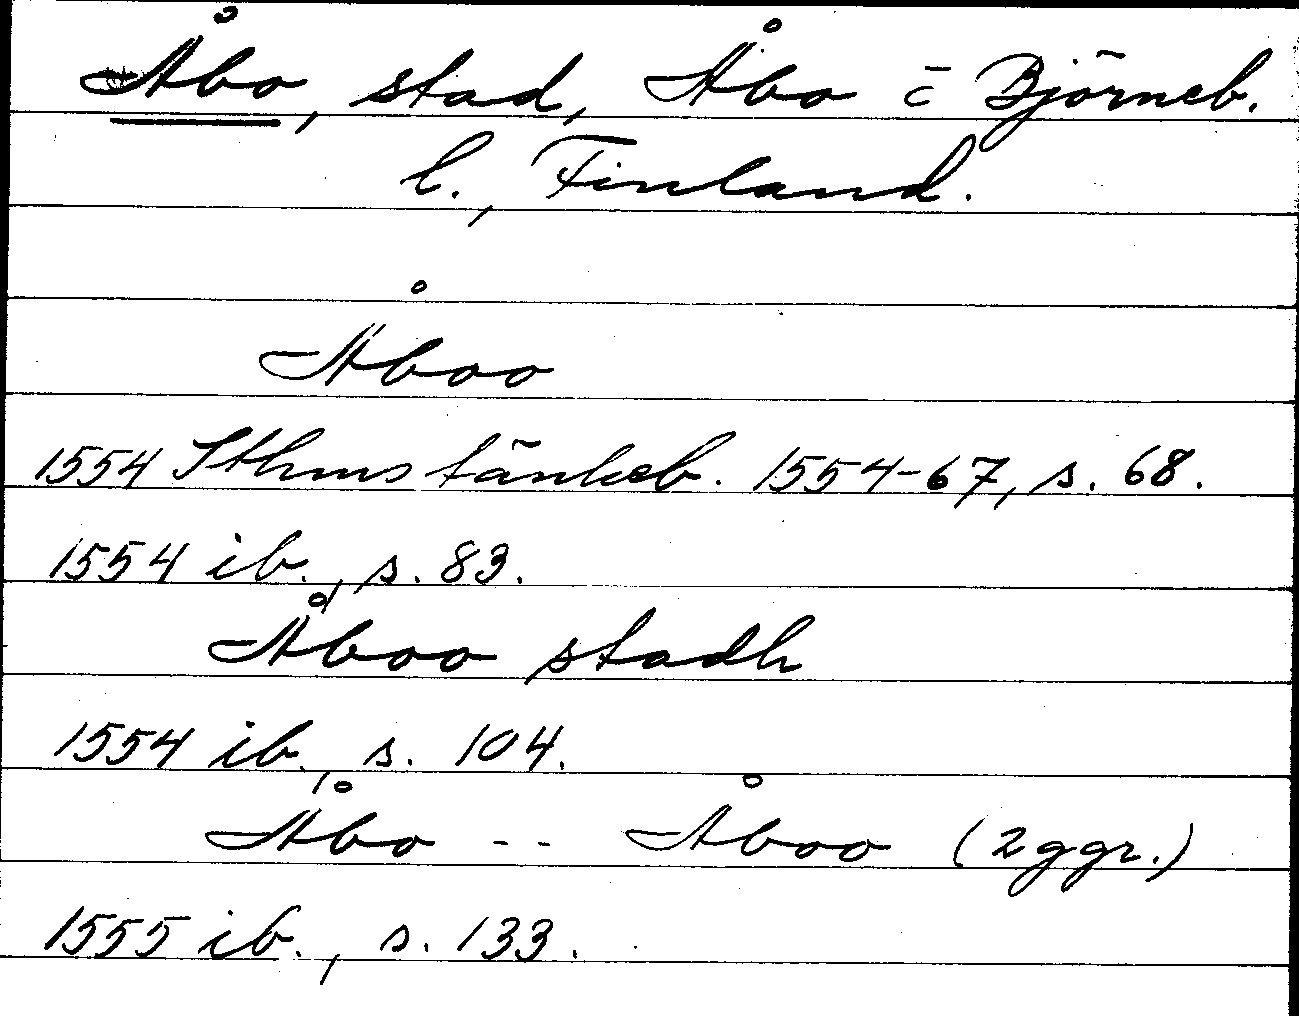 Åbo, stad, Åbo o̅ Björneb.
l., Finland.
Åboo
1554 Sthms tänkeb. 1554-67, s. 68.
1554 ib., s. 83.
Åboo stadh
1554 ib., s. 104.
Åbo -- Åboo (2 ggr.)
1555 ib., s. 133.